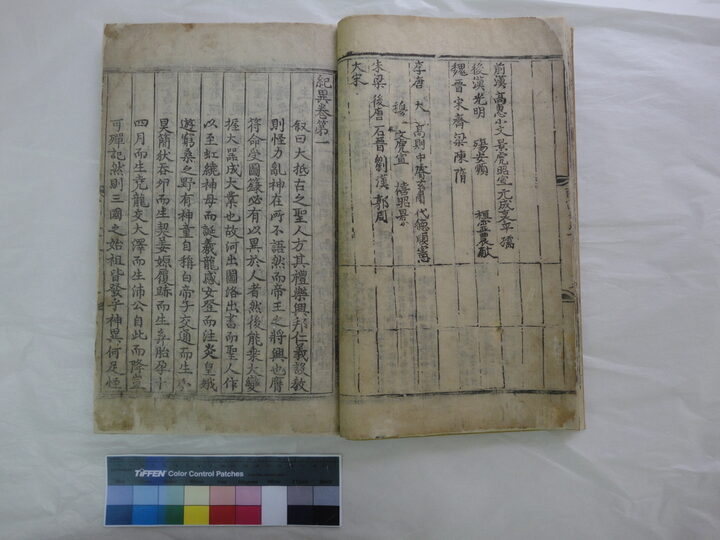 前漢 高惠小文景虎昭宣元成哀平孺
後漢 光明 殤安順 桓靈農獻
魏晉宋齊梁陳隋
李唐 大高則中睿玄肅代德順憲
穆 文虎宣 僖昭景
朱梁後唐石晉劉漢郭周
大宋
紀異卷第一
叙曰大抵古之聖人方其禮樂興邦仁義設教
則怪力亂神在所不語然而帝王之將興也膺
符命受圖籙必有以異於人者然後能乘大變
握大器成大業也故河出圖洛出書而聖人作
以至虹繞神母而誕羲龍感女登而注炎皇娥
遊窮桑之野有神童自稱白帝子交通而生小
昊簡狄吞卵而生契姜嫄履跡而生弃胎孕十
四月而生堯龍交大澤而生沛公自此而降豈
可殫記然則三國之始祖皆發乎神異何足怪
TIFFEN Color Control Patches